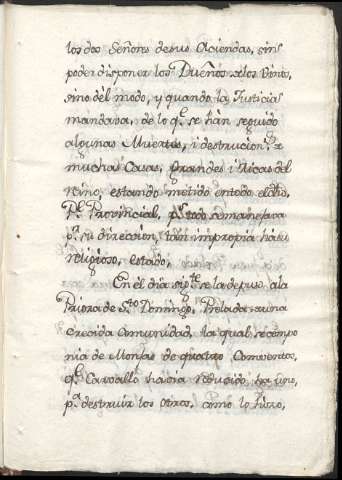 los dos Señores de sus Aciendas, sin
poder disponer los Dueños de los Vinos,
sino del modo, y quando la Justicia
mandava, de lo q.e se han seguido
algunas Muertes, i destrucion, de
muchas Casas, grandes i Ricas del
Reino, estando metido en todo el dho,
P.e Provincial, p.s todo se manejava
p.r su direccion, tan impropia ha su
religioso, estado,
En el dia sig.te se la depuso, a la
Priora de S.to Domingo, Prelada de una
crecida Comunidad, la qual se compo
nia de Monjas de quatro Conventos,
q.e Carvallo havia reducido, ha uno,
p.a destruir los otros, como lo hizo,